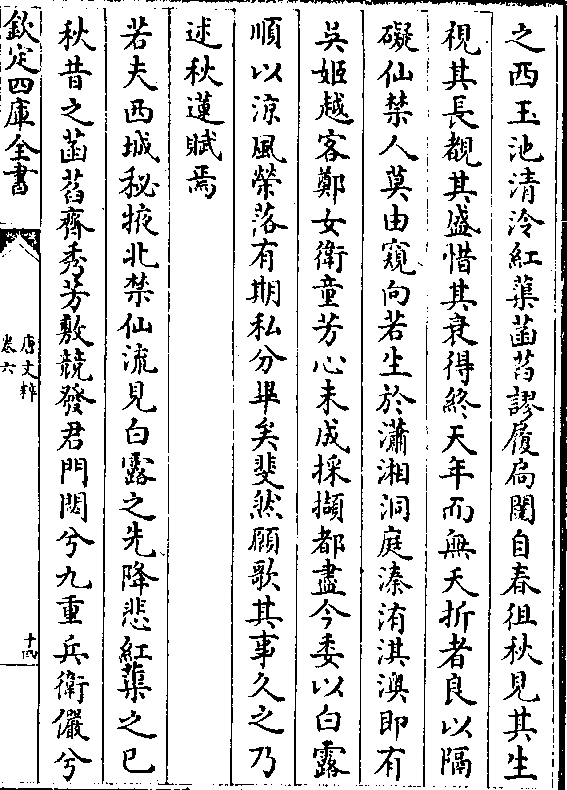 之西玉池清泠紅蕖菡萏謬履扃闈自春徂秋見其生
視其長覩其盛惜其衰得終天年而無夭折者良以隔
礙仙禁人莫由窺向若生於瀟湘洞庭溱洧淇澳即有
吳姬越客鄭女衛童芳心未成採擷都盡今委以白露
順以涼風榮落有期私分畢矣斐然願歌其事久之乃
述秋蓮賦焉
若夫西城秘掖北禁仙流見白露之先降悲紅蕖之已
秋昔之菡萏齊秀芳敷競發君門閟兮九重兵衛儼兮
欽定四庫全書
唐文粹
卷六
十四